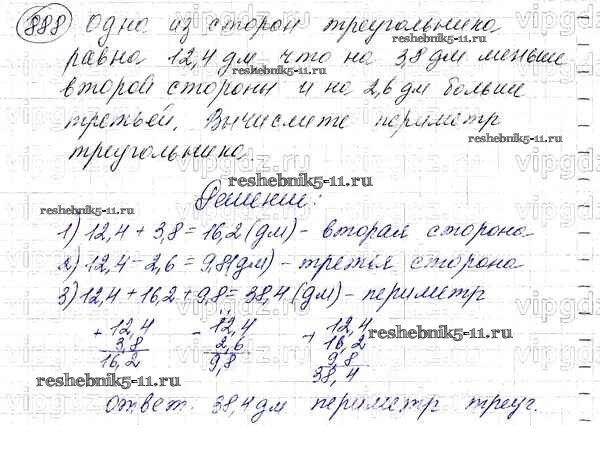 888 Одна из сторон треугольника
равна 12,4 дм, что на 38 дм меньше
второй стороны и на 2,6 дм больше
третьей. Вычислите периметр
треугольника.
Решение:
1) 12,4 + 3,8 = 16,2 (дм) - вторая сторона
2) 12,4 - 2,6 = 9,8 (дм) - третья сторона
3) 12,4 + 16,2 + 9,8 = 38,4 (дм) - периметр
+ 12,4 - 12,4 + 12,4
3,8 2,6 16,2
16,2 9,8 9,8
38,4
ответ. 38,4 дм периметр треуг.
reshebnik5-11.ru
reshebnik5-11.ru
reshebnik5-11.ru
reshebnik5-11.ru
reshebnik5-11.ru
reshebnik5-11.ru
reshebnik5-11.ru
vipgdz.ru